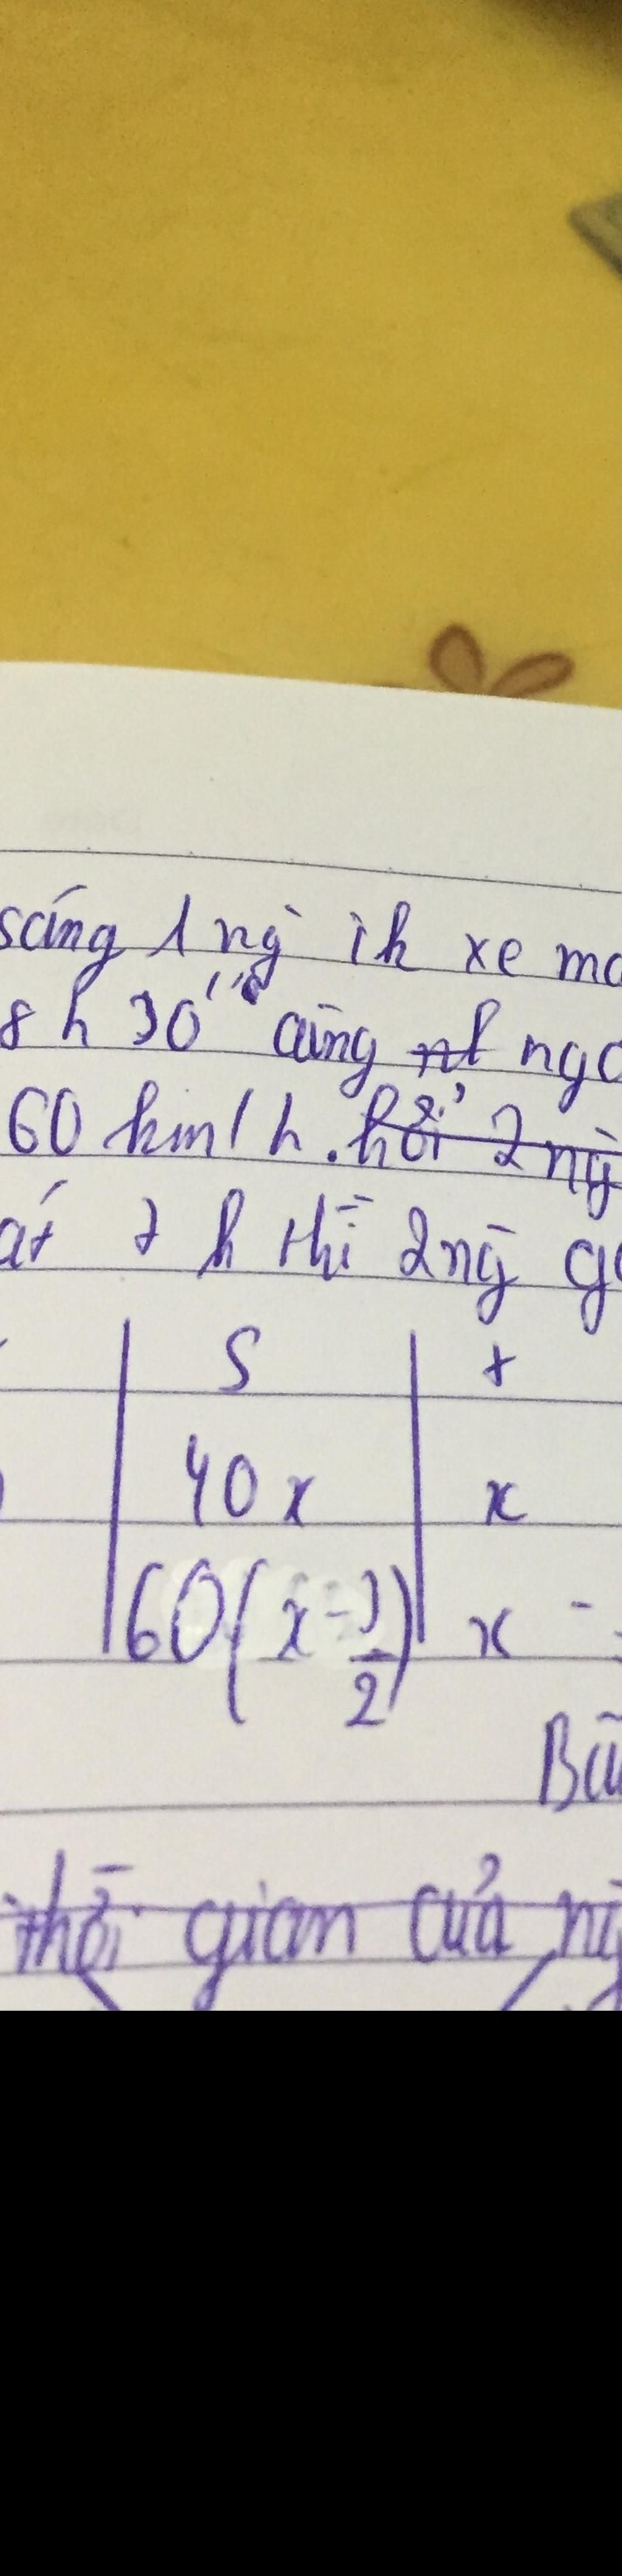 sáng 1 ng' ik xe mo
8 h 30' cùng ngo
60 km/h. hỏi 2 ng
h thì 2 ng g
S t
40x x
60(x-3/2) x -
Bà
thời gian của ng